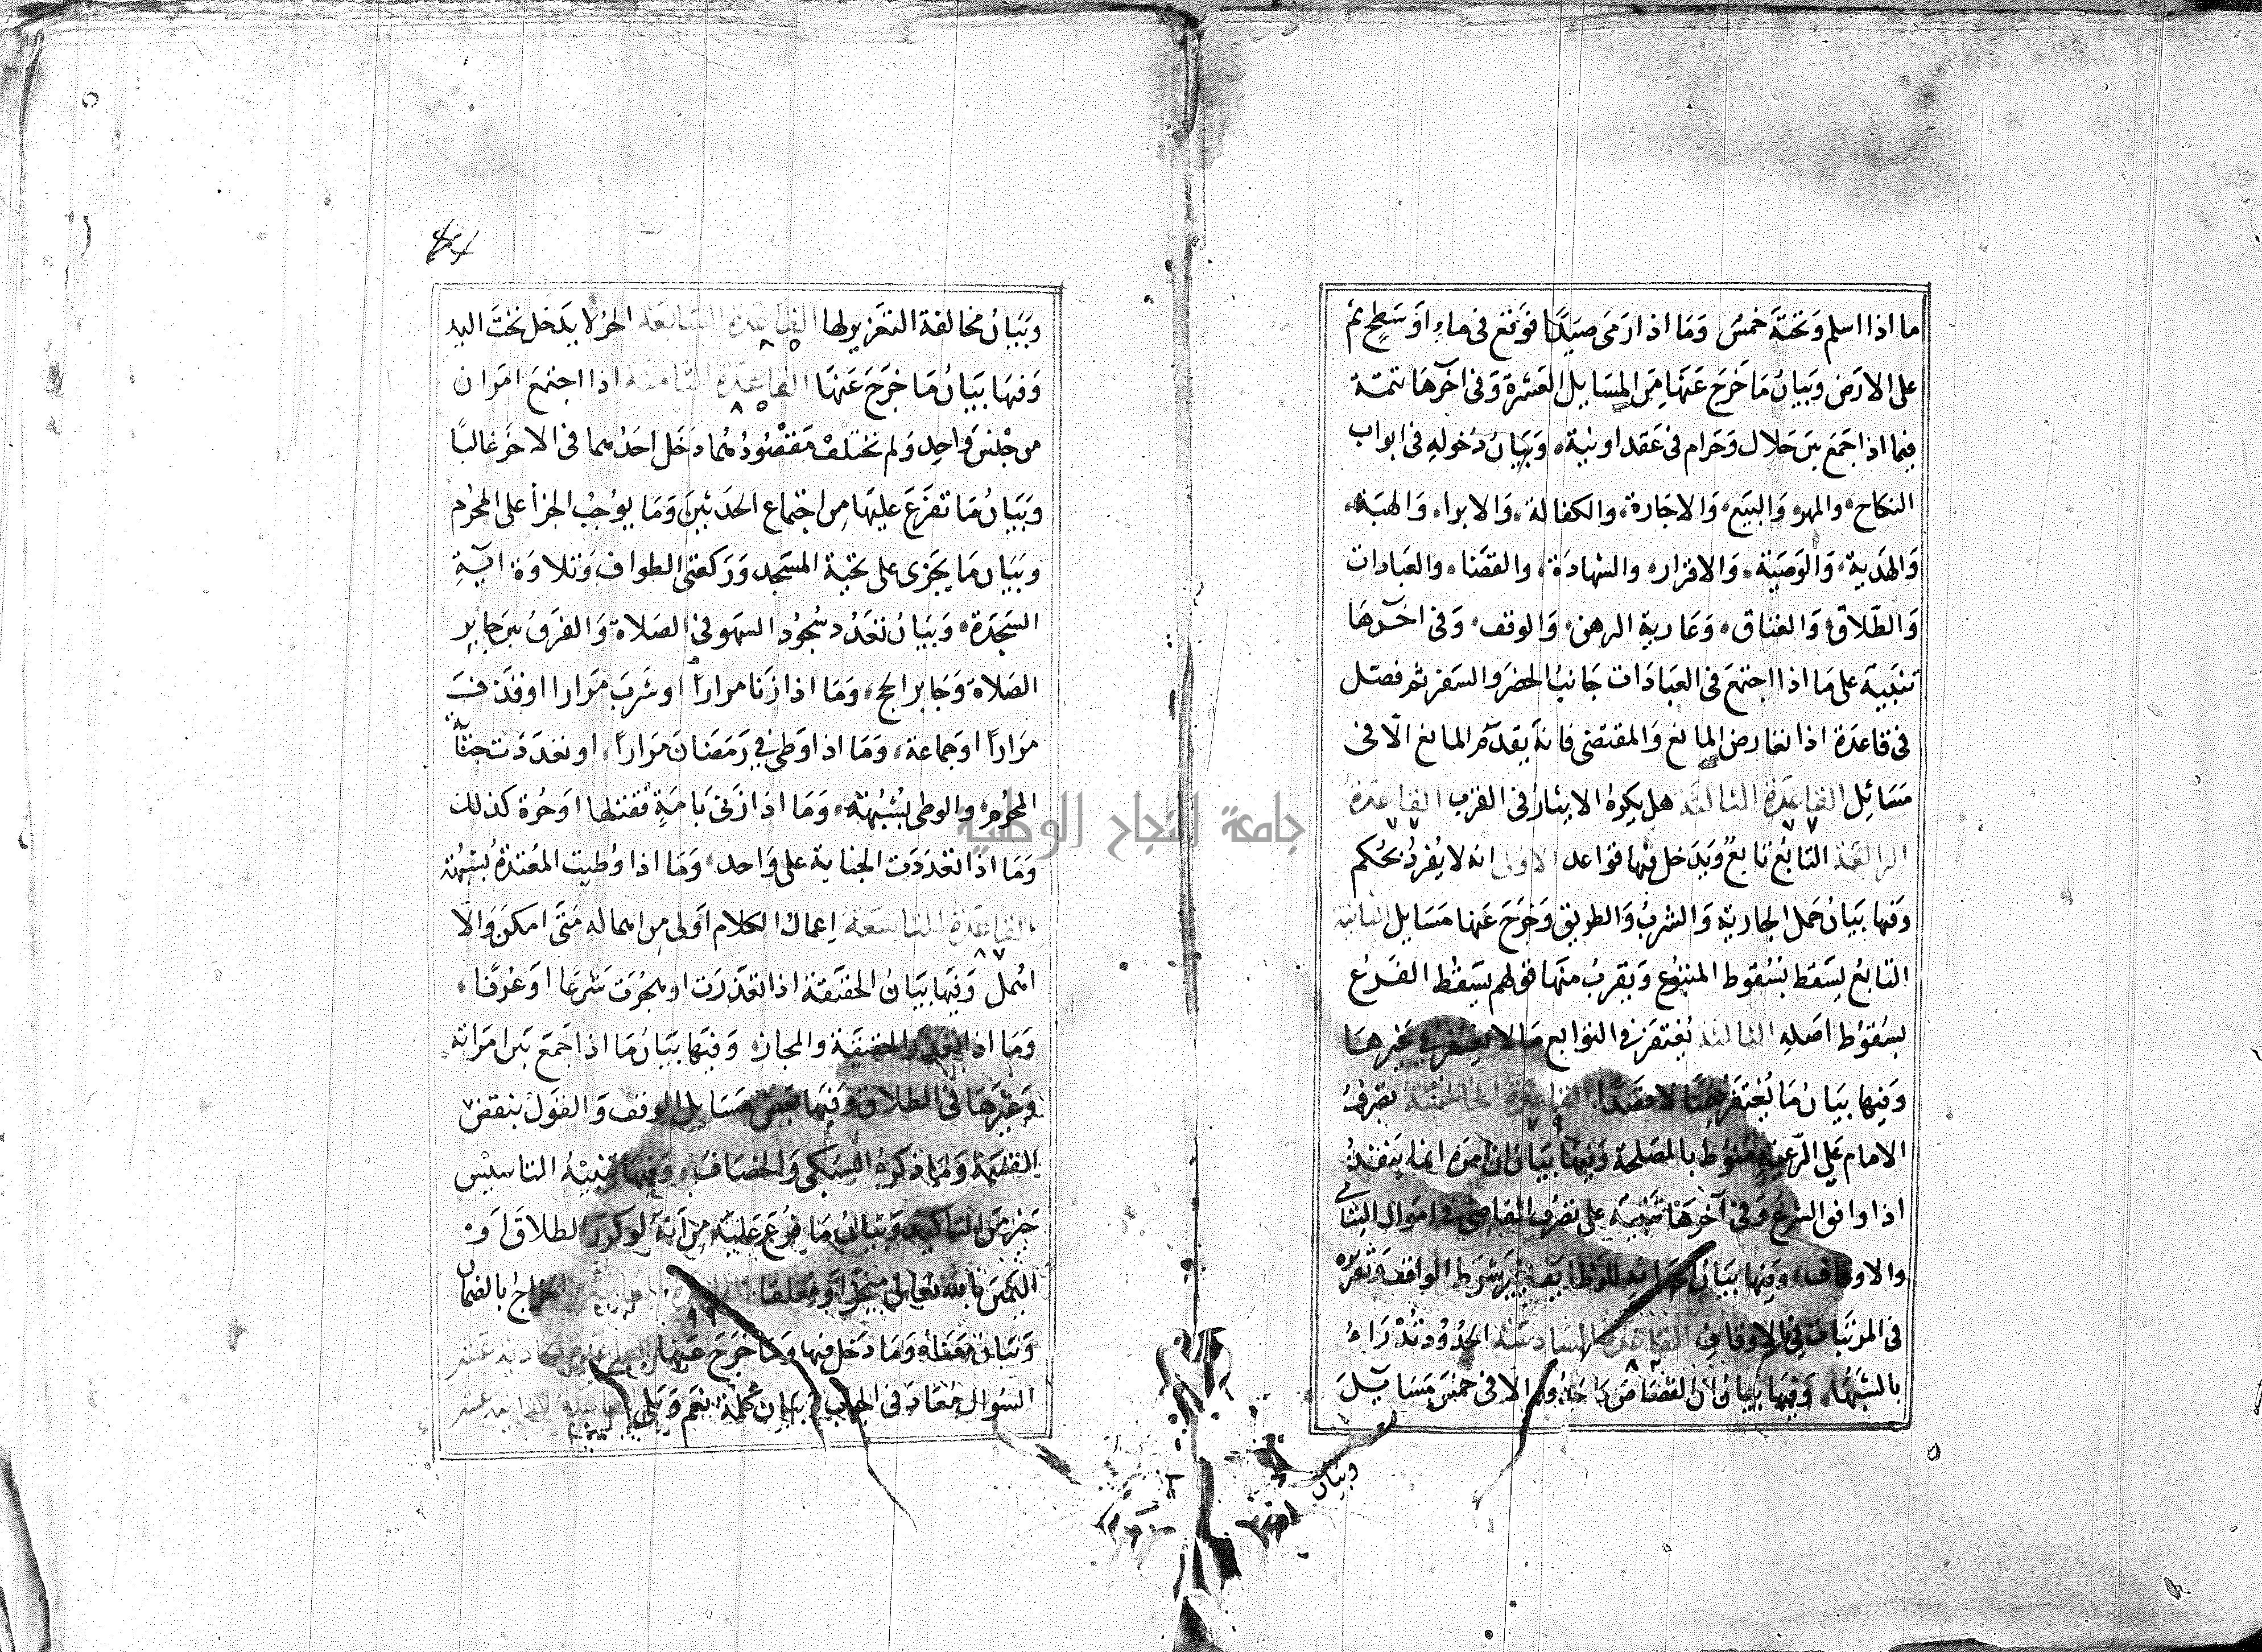 ما اذا اسلم وتحته خمس وما اذا رمى صيدا فوقع فى ماء او سطح ثم
على الارض وبيان ما خرج عنها من المسايل العشرة وفى اخرها تتمة
فيما اذا جمع بين حلال وحرام فى عقد او نية وبيان دخوله فى ابواب
النكاح والمهر والبيع والاجارة والكفالة والابراء والهبة
والهدية والوصية والاقرار والشهادة والقضاء والعبادات
والطلاق والعتاق وعارية الرهن والوقف وفى اخرها
تنبيه على ما اذا اجتمع فى العبادات جانب الحضر والسفر ثم فصل
فى قاعدة اذا تعارض المانع والمقتضى فانه يقدم المانع الا فى
مسائل القاعدة الثالثة هل يكره الايثار فى القرب القاعدة
٧٧ ٧٧
الرابعة التابع تابع ويدخل فيها قواعد الاولى انه لا يفرد بحكم
وفيها بيان حمل الجارية والشرب والطريق وخرج عنها مسايل الثانية
التابع يسقط بسقوط المتبوع ويقرب منها قولهم يسقط الفرع
بسقوط اصله الثالثة يغتفر فى التوابع مالا يغتفر فى غيرها
وفيها بيان ما يغتفر ضمنا لا قصدا القاعدة الخامسة تصرف
٧٩
الامام على الرعية منوط بالمصلحة وفيها بيان ان امره انما ينفذ
اذا وافق الشرع وفى آخرها تنبيه على تصرف القاضى فى اموال اليتامى
والاوقاف وفيها بيان احداثه للوظايف بغير شرط الواقف وتقريره
فى المرتبات فى الاوقاف القاعدة السادسة الحدود تدراء
٨٢
بالشبهات وفيها بيان ان القصاص كالحدود الا فى خمس مسايل
وبيان
وبيان مخالفة التعزير لها القاعدة السابعة الحر لا يدخل تحت اليد
٨٥
وفيها بيان ما خرج عنها القاعدة الثامنة اذا اجتمع امران
٨٥
من جنس واحد ولم تختلف مقصودهما دخل احدهما فى الاخر غالبا
وبيان ما تفرع عليها من اجتماع الحدثين وما يوجب الجزأ على المحرم
وبيان ما يجزى على تحية المسجد وركعتى الطواف وتلاوة آية
السجدة وبيان تعدد سجود السهو فى الصلاة والفرق بين جابر
الصلاة وجابر الحج وما اذا زنا مرارا او شرب مرارا او قذف
مرارا او جماعة وما اذا وطى فى رمضان مرارا او تعددت جناية
المحرم والوطى بشبهة وما اذا زنى بامة فقتلها او حرة كذلك
وما اذا تعددت الجناية على واحد وما اذا وطيت المعتدة بشبهة
القاعدة التاسعة اعمال الكلام اولى من اهماله متى امكن والا
٨٧
اهمل وفيها بيان الحقيقة اذا تعذرت او هجرت شرعا او عرفا
وما اذا تعذر الحقيقة والمجاز وفيها بيان ما اذا جمع بين امراته
وغيرها فى الطلاق وفيها بعض مسايل الوقف والقول بنقض
القسمة وما ذكره السبكى والخصاف وفيها تنبيه التاسيس
خير من التاكيد وبيان ما فرع عليه من انه لو كرر الطلاق او
اليمين بالله تعالى منجزا او معلقا القاعدة العاشرة الخراج بالضمان
وبيان معناه وما دخل فيها وما خرج عنها القاعدة الحادية عشر
السوال معاد فى الجواب وبيان كلمة نعم وبلى القاعدة الثانية عشر